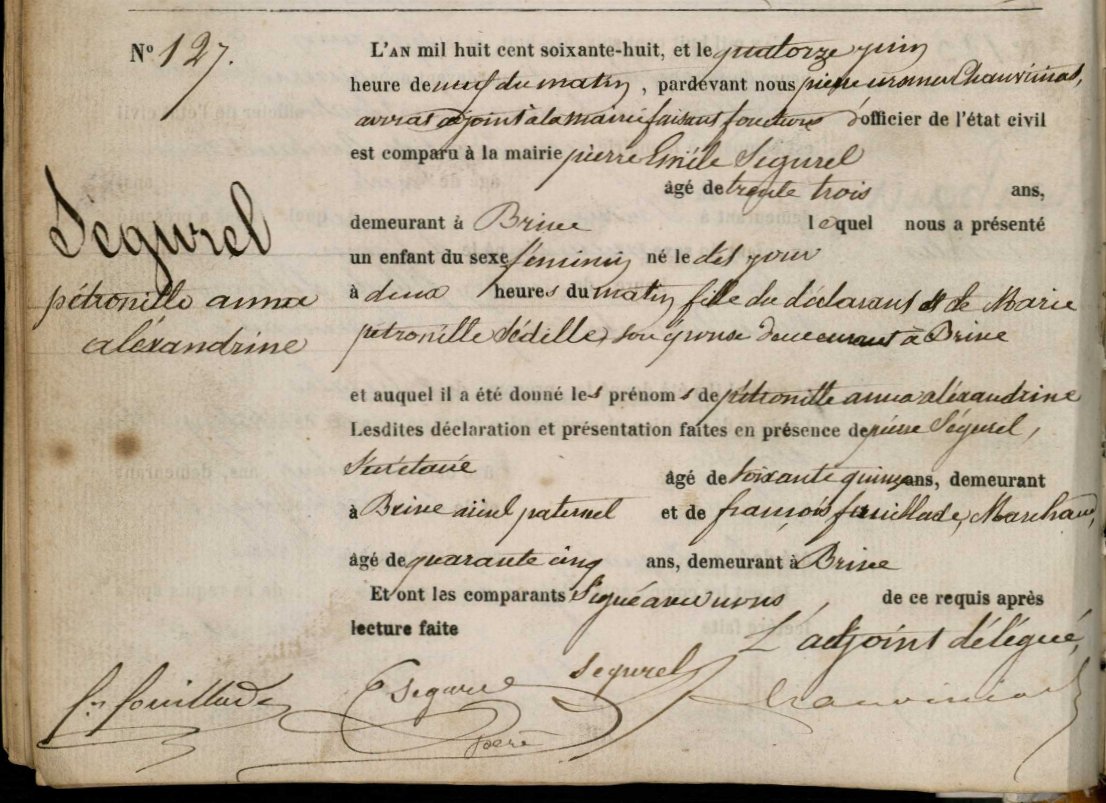 N° 127.
L'AN mil huit cent soixante-huit, et le quatorze juin
heure de neuf du matin, pardevant nous pierre Chauviniat,
avocat adjoint à la mairie faisant fonctions d'officier de l'état civil
est comparu à la mairie pierre Emile Ségurel
âgé de trente trois ans,
demeurant à Brive lequel nous a présenté
un enfant du sexe féminin né le dès jour
à deux heures du matin fille du déclarant et de Marie
petronille Sédille, son épouse demeurant à Brive
Segurel
pétronille anna
aléxandrine
et auquel il a été donné les prénoms de pétronille anna aléxandrine
Lesdites déclaration et présentation faites en présence de pierre Ségurel,
âgé de soixante quinze ans, demeurant
à Brive aïeul paternel et de françois fouillade, Marchand,
âgé de quarante cinq ans, demeurant à Brive
Et ont les comparants signé avec nous, de ce requis après
lecture faite
L'adjoint délégué,
fs fouillade E Segurel Segurel Chauviniat
père